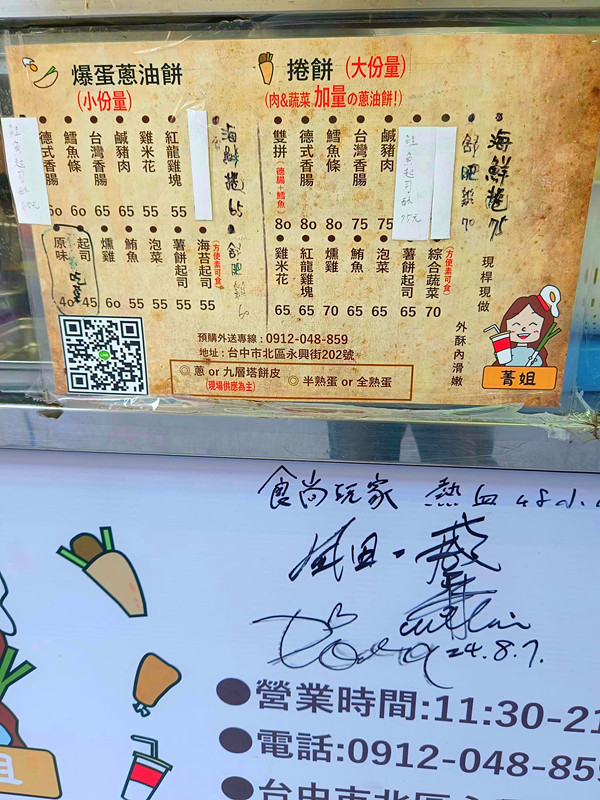 爆蛋蔥油餅
(小份量)
捲餅 (大份量)
(肉&蔬菜 加量の蔥油餅!)
德式香腸 60
鱈魚條 60
台灣香腸 65
鹹豬肉 65
雞米花 55
紅龍雞塊 55
海鮮捲 65
原味 40
起司 45
燻雞 60
鮪魚 55
泡菜 55
薯餅起司 55
海苔起司 (方便素可食) 55
舒肥雞 60
雙拼 (德腸+鱈魚) 80
德式香腸 80
鱈魚條 80
台灣香腸 75
鹹豬肉 75
鮭魚起司 75元
舒肥雞 70
海鮮捲 75
雞米花 65
紅龍雞塊 65
燻雞 70
鮪魚 65
泡菜 65
薯餅起司 65
綜合蔬菜 (方便素可食) 70
現桿現做
外酥內滑嫩
菁姐
預購外送專線:0912-048-859
地址:台中市北區永興街202號
◎ 蔥 or 九層塔餅皮
(現場供應為主)
◎ 半熟蛋 or 全熟蛋
食尚玩家 熱血
24.8.7.
●營業時間:11:30-21
●電話:0912-048-859
●台中市北區永
姐